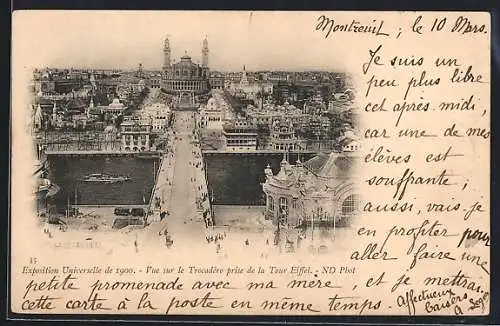 Montreuil, le 10 Mars.
Je suis un
peu plus libre
cet après midi,
car une de mes
élèves est
souffrante ;
aussi, vais-je
en profiter pour
aller faire une
35
Exposition Universelle de 1900. - Vue sur le Trocadéro prise de la Tour Eiffel. - ND Phot
petite promenade avec ma mère, et je mettrai
cette carte à la poste en même temps.
Affectueux
baisers
A.